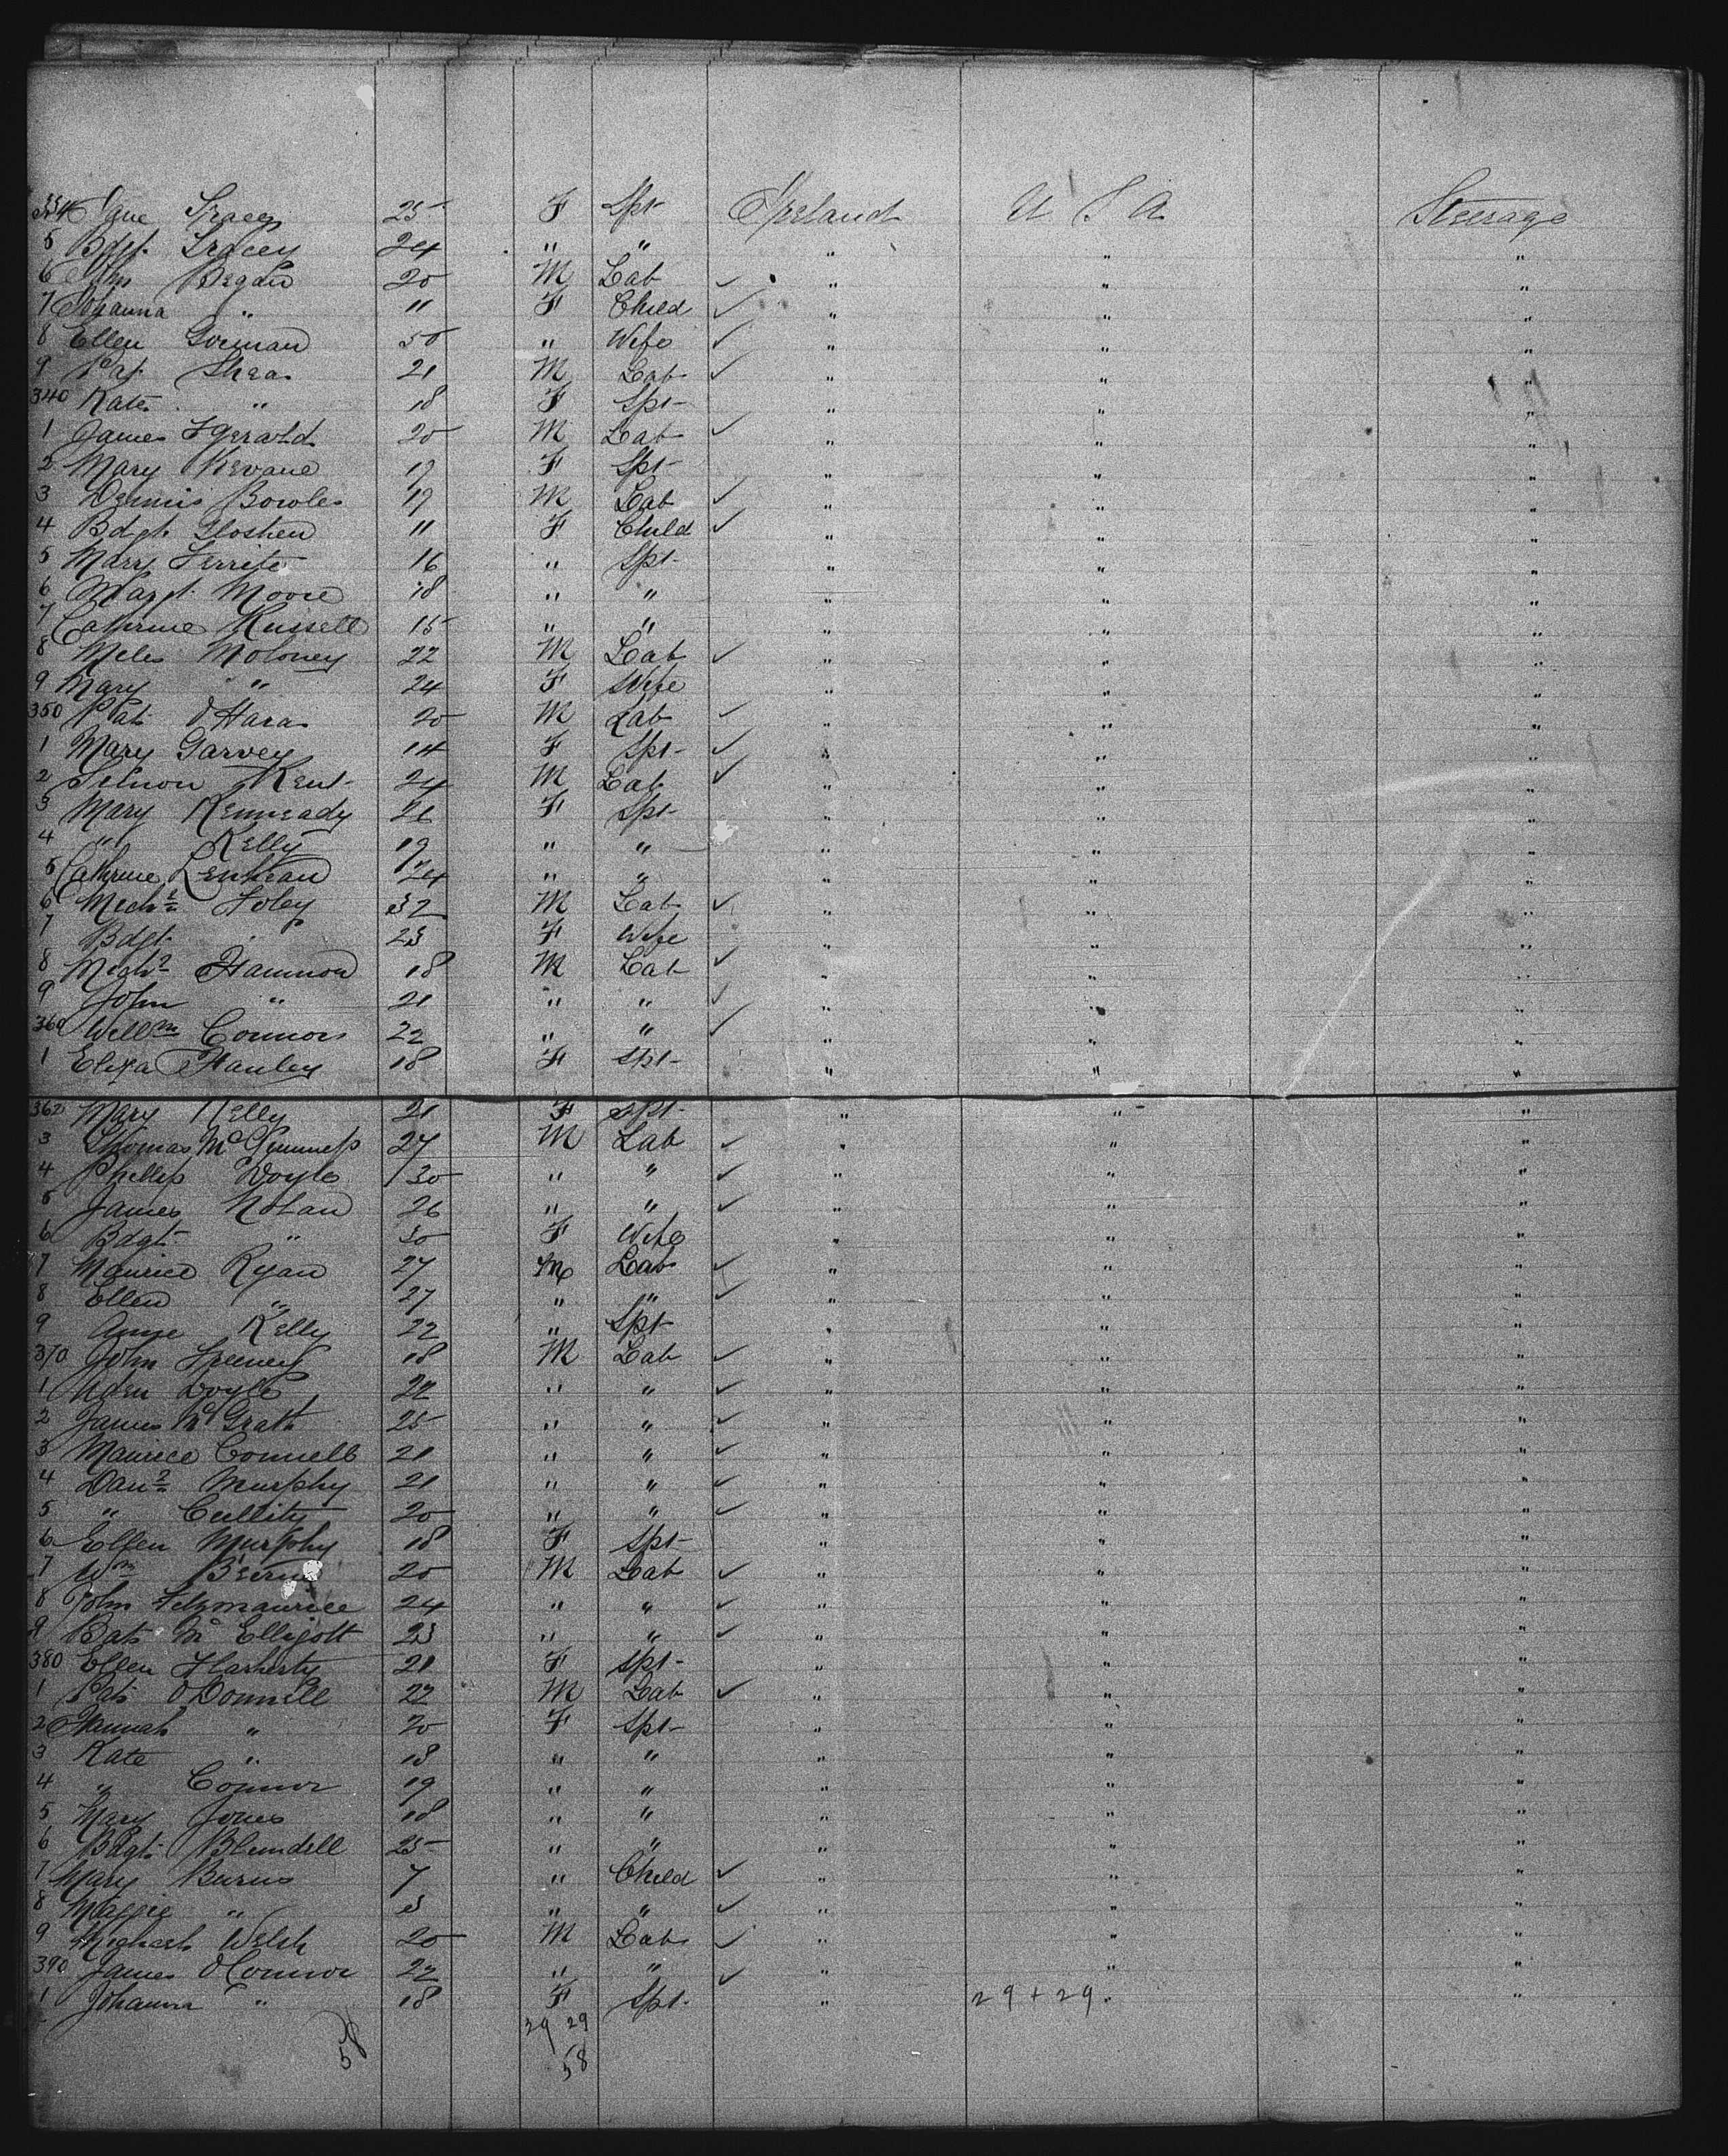 334 Jane Tracey 25 F Spt Ireland U S A Steerage
5 Bdgt. Tracey 24 " " " " "
6 Thos Regan 20 M Lab ✓ " " "
7 Johanna " 11 F Child ✓ " " "
8 Ellen Gorman 50 " Wife ✓ " " "
9 Pat Shea 21 M Lab ✓ " " "
340 Kate " 18 F Spt " " "
1 James Fgerald 20 M Lab ✓ " " "
2 Mary Kevane 19 F Spt " " "
3 Dennis Bowles 19 M Lab ✓ " " "
4 Bdgt. 11 F Child ✓ " " "
5 Mary Ferrite 16 " Spt " " "
6 Margt. Moore 18 " " " " "
7 Catherine Russell 15 " " " " "
8 Miles Moloney 22 M Lab ✓ " " "
9 Mary " 24 F Wife " " "
350 Pat O'Hara 20 M Lab ✓ " " "
1 Mary Garvey 14 F Spt ✓ " " "
2 Simon Kent 24 M Lab ✓ " " "
3 Mary Kenneady 26 F Spt " " "
4 " Kelly 19 " " " " "
5 Cathrine Lenhean 24 " " " " "
6 Michl Foley 32 M Lab ✓ " " "
7 Bdgt. " 23 F Wife " " "
8 Michl Hannon 18 M Lab ✓ " " "
9 John " 21 " " ✓ " " "
360 Willm Connors 22 " " ✓ " " "
1 Eliza Hanley 18 F Spt " " "
362 Mary Kelly 21 F Spt " " "
3 Thomas McGuinness 27 M Lab ✓ " " "
4 Phillip Doyle 30 " " ✓ " " "
5 James Nolan 26 " " ✓ " " "
6 Bdgt " 30 F Wife " " "
7 Maurice Ryan 27 M Lab ✓ " " "
8 Ellen " 27 " " ✓ " " "
9 Anne Kelly 22 " Spt " " "
370 John Freeney 18 M Lab ✓ " " "
1 Aden Doyle 22 " " ✓ " " "
2 James McGrath 25 " " ✓ " " "
3 Maurice Connell 21 " " ✓ " " "
4 Danl Murphy 21 " " ✓ " " "
5 " Cullity 20 " " ✓ " " "
6 Ellen Murphy 18 F Spt " " "
7 Wm 20 M Lab ✓ " " "
8 John Fitzmaurice 24 " " ✓ " " "
9 Bat Mc Elligott 23 " " ✓ " " "
380 Ellen Flarherty 21 F Spt " " "
1 Pat O'Connell 22 M Lab ✓ " " "
2 Hannah " 20 F Spt " " "
3 Kate " 18 " " " " "
4 " Connor 19 " " " " "
5 Mary Jones 18 " " " " "
6 Bdgt. Blundell 25 " " " " "
7 Mary Burns 7 " Child ✓ " " "
8 Maggie " 3 " " ✓ " " "
9 Michael Welsh 20 M Lab ✓ " " "
390 James O'Connor 22 " " ✓ " " "
1 Johanna " 18 F Spt " 29 + 29 " "
29 29
58 58